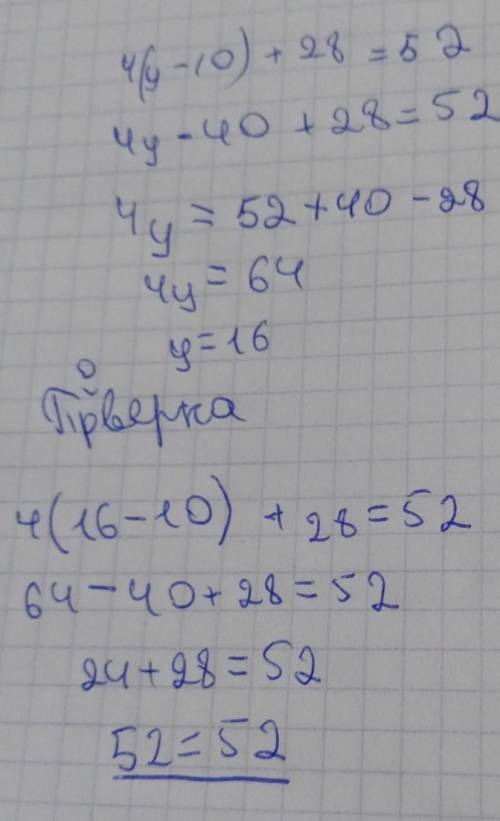 4(y-10)+28=52
4y-40+28=52
4y=52+40-28
4y=64
y=16
Проверка
4(16-10)+28=52
64-40+28=52
24+28=52
52=52